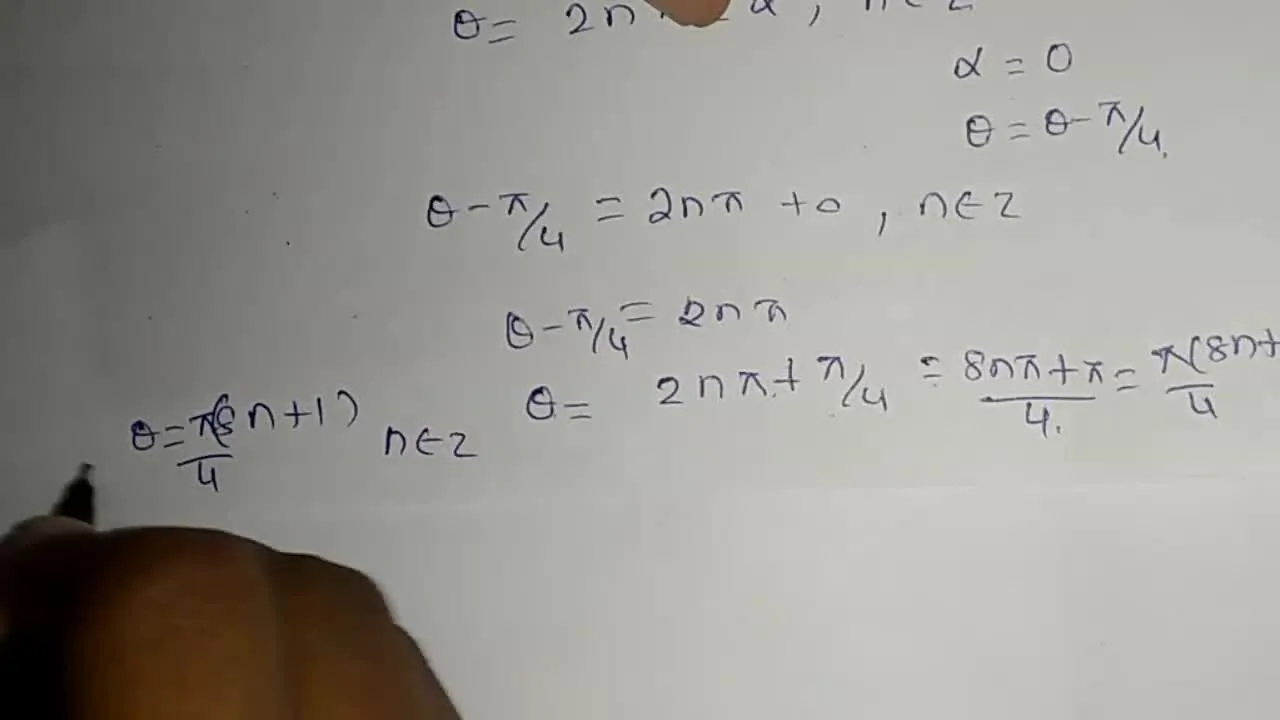 θ = 2n α, n
α = 0
θ = θ - π/4
θ - π/4 = 2nπ + 0, n∈Z
θ - π/4 = 2nπ
θ = 2nπ + π/4 = 8nπ+π/4. = π(8n+/4
θ = π(8n+1)/4 n∈Z